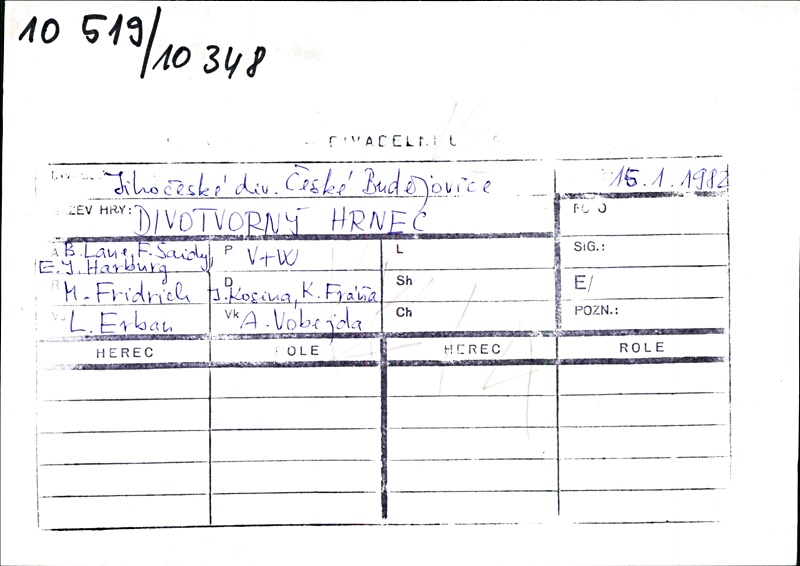 10 519/10 348
DIVADELNÍ
Jihočeské div. České Budějovice 15.1.1982
ZEV HRY: DIVOTVORNÝ HRNEC FOTO
A B. Lane, F. Saidy, P V+W L SIG.:
E. Y. Harburg
R M. Fridrich D J. Kosina, K. Fráňa Sh E/
L. Erban Vk A. Vobejda Ch POZN.:
HEREC OLE HEREC ROLE